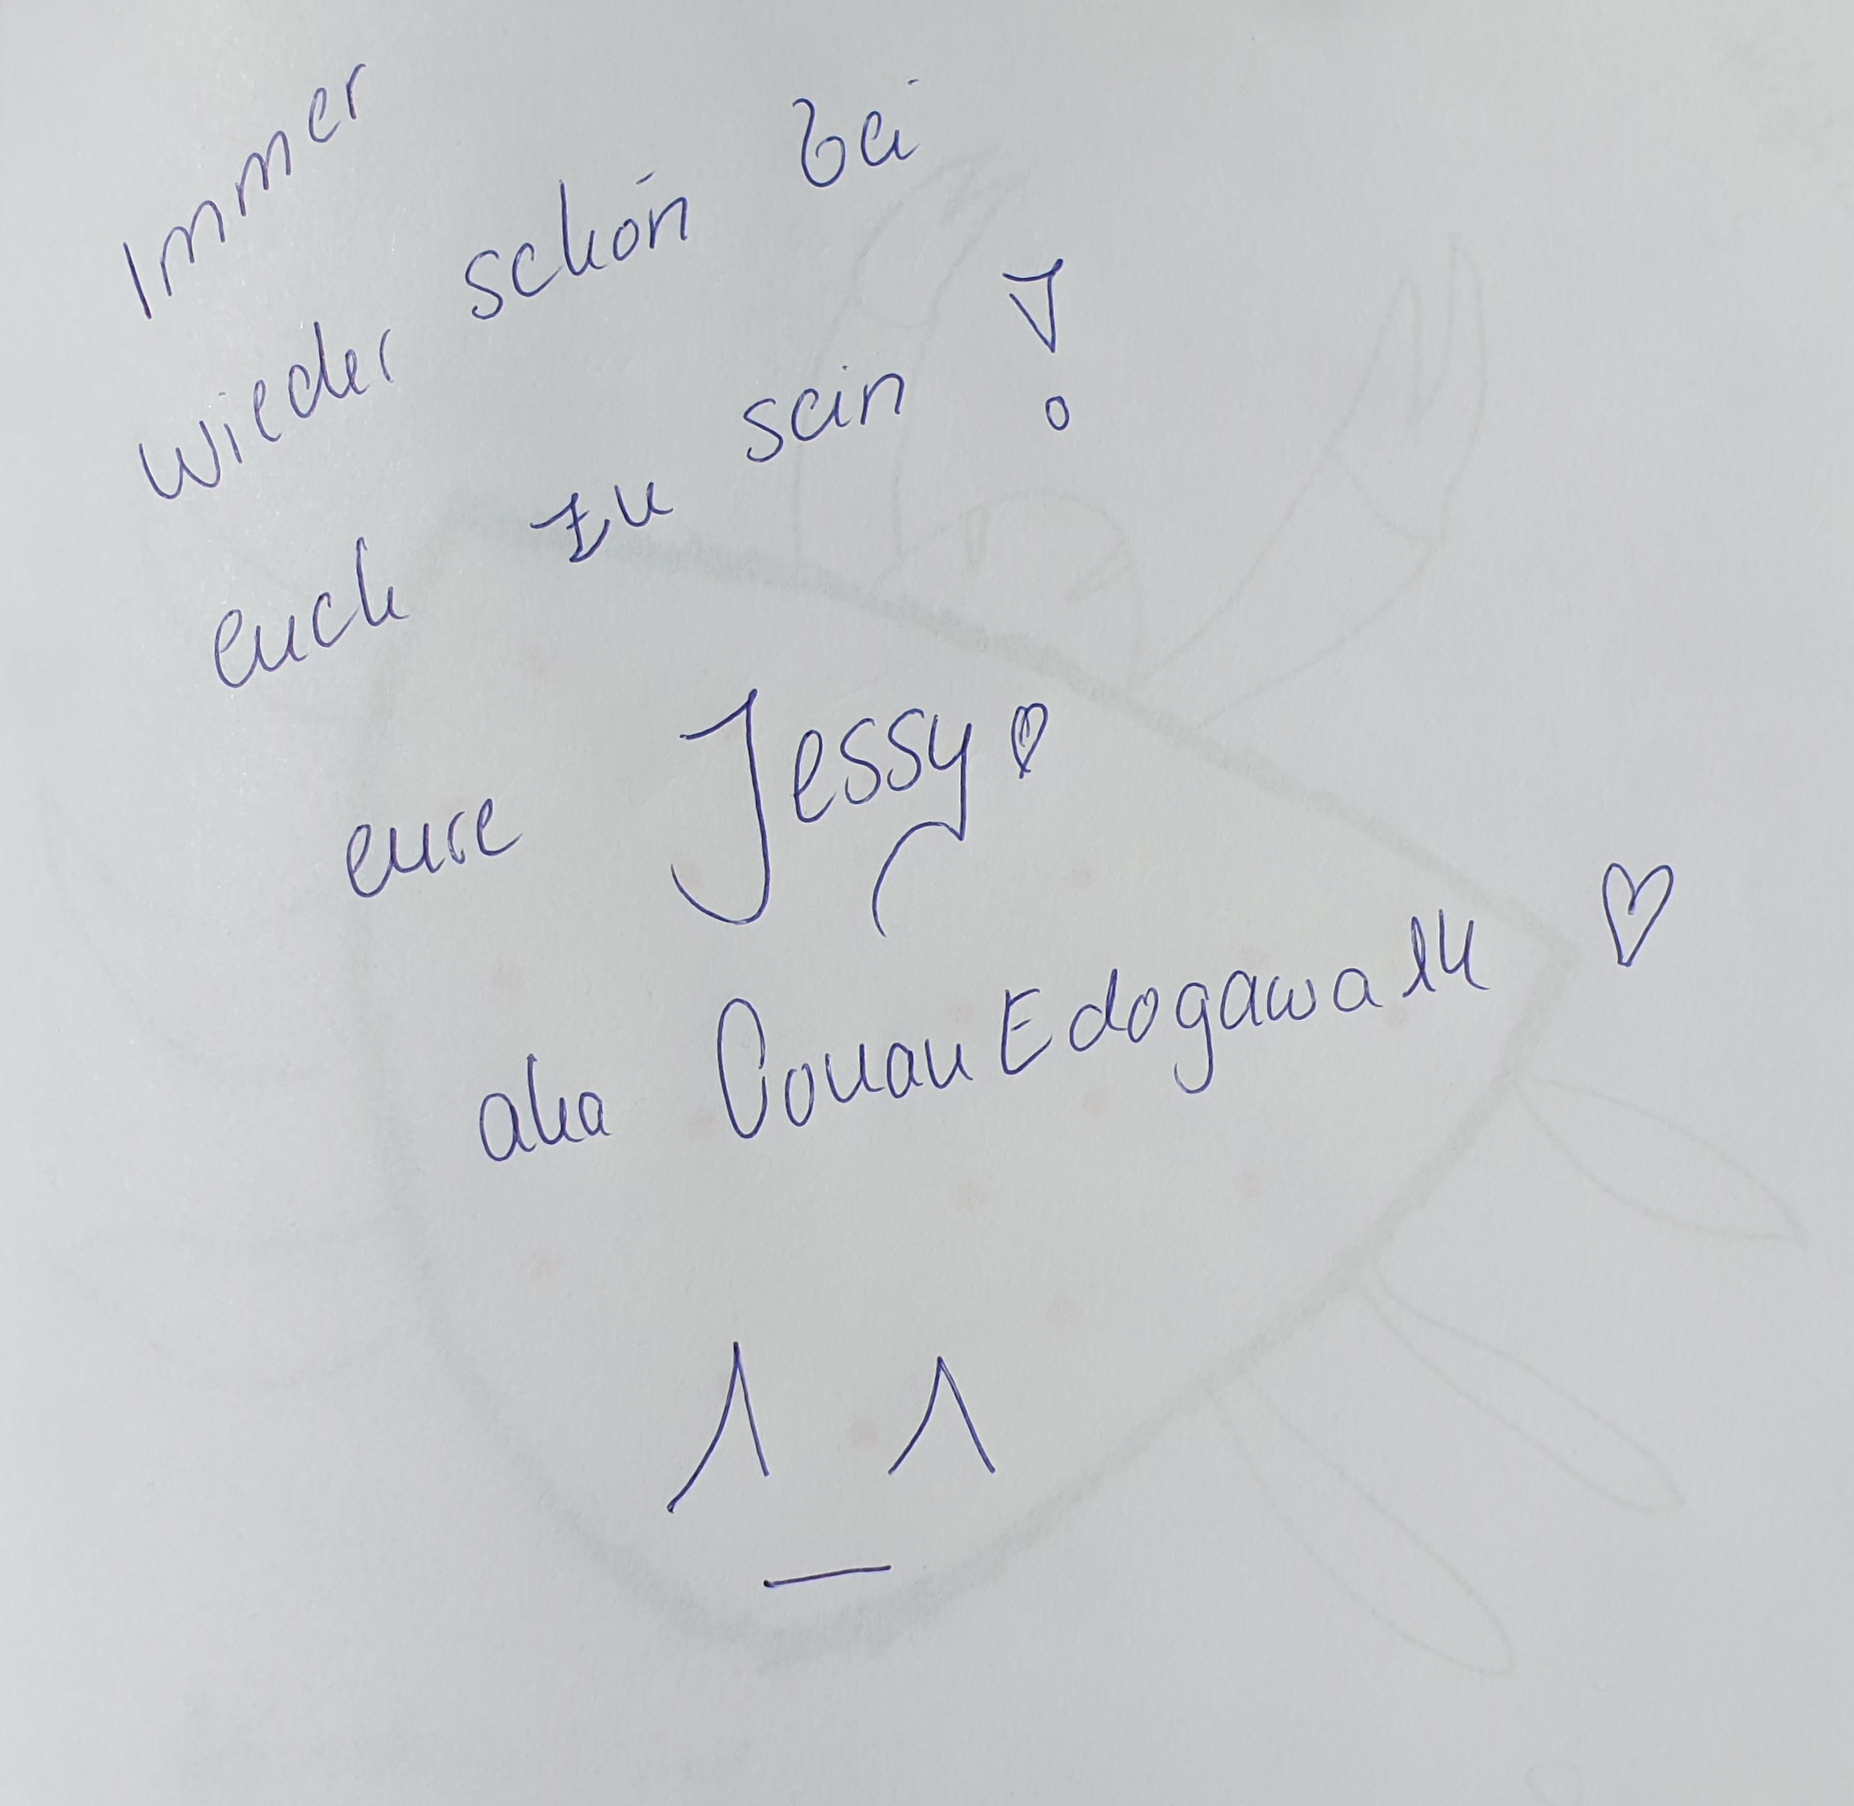 Immer
wieder schön bei
euch zu sein!
eure Jessy ♡
aka ConanEdogawa14 ♡
^_^